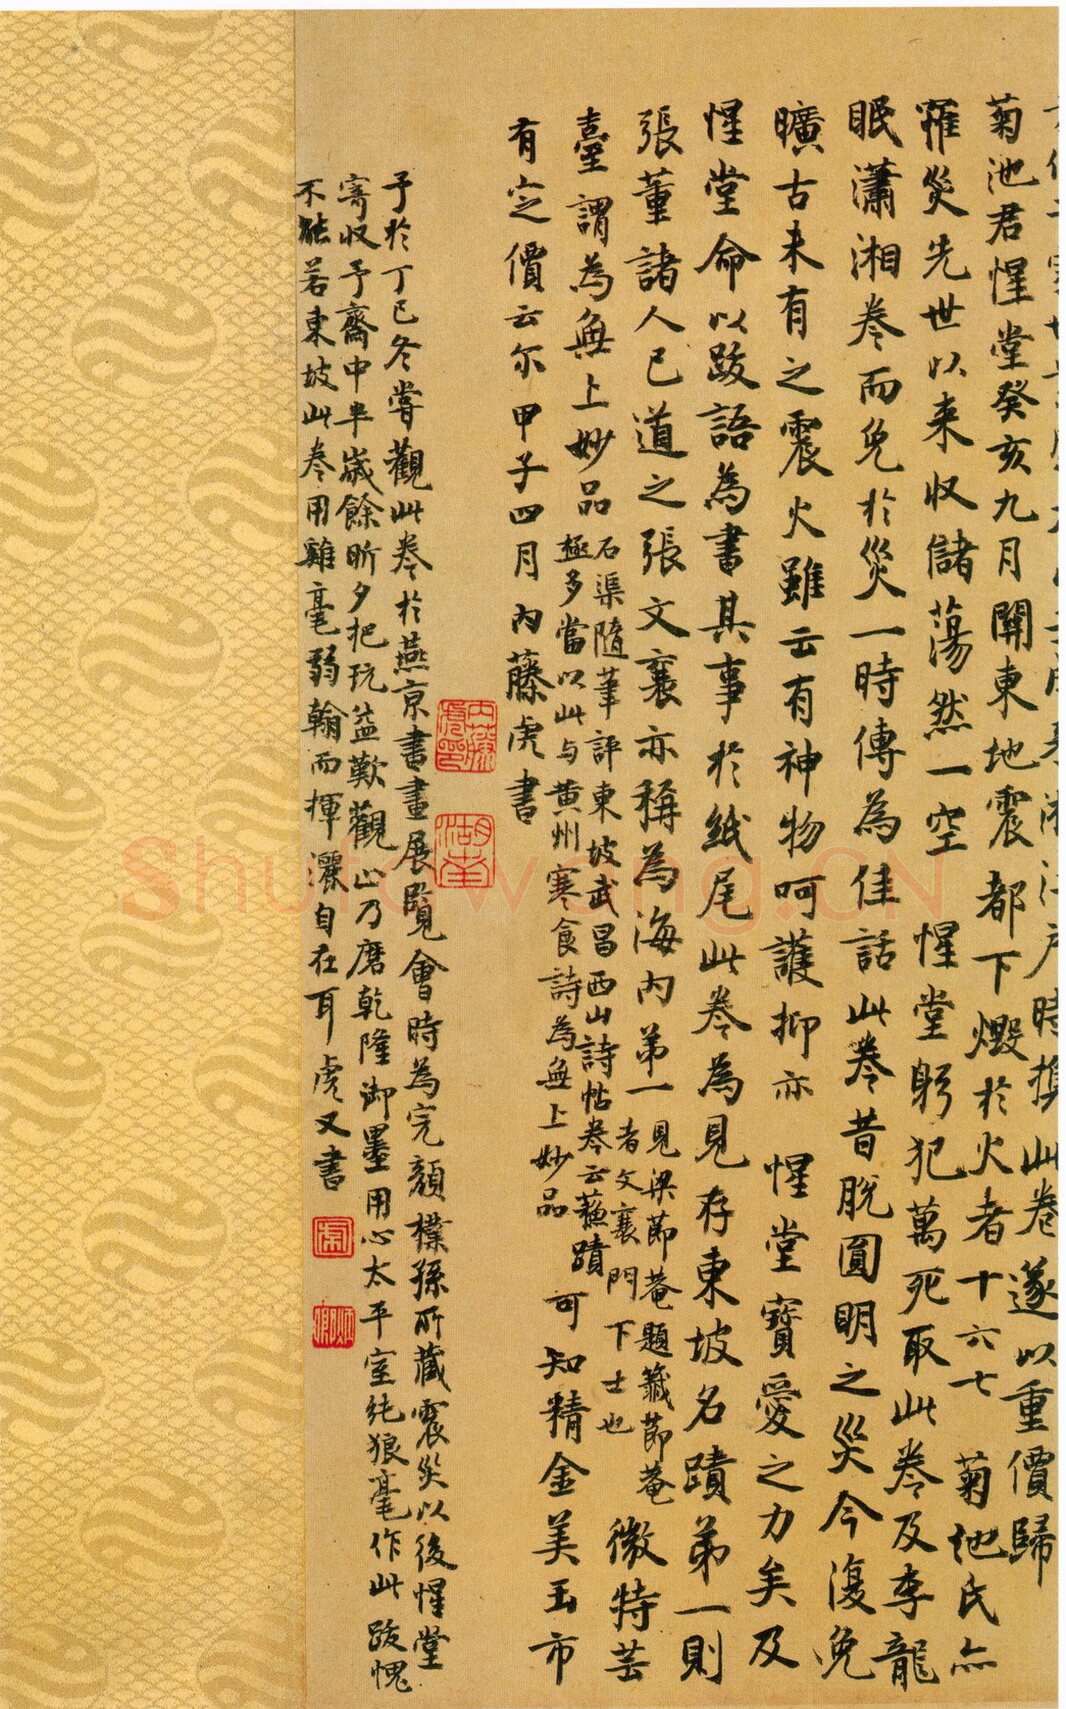 時攜此卷遂以重價歸
菊池君惺堂癸亥九月關東地震都下燬於火者十六七菊池氏亦
罹災先世以来収儲蕩然一空惺堂躬犯萬死取此卷及李龍
眠瀟湘卷而免於災一時傳為佳話此卷昔脫圓明之災今復免
曠古未有之震火雖云有神物呵護抑亦惺堂寶愛之力矣及
惺堂命以跋語為書其事於紙尾此卷為見存東坡名蹟第一則
張董諸人已道之張文襄亦稱為海内第一
見梁節菴題籤節菴
者文襄門下士也
微特芸
臺謂為無上妙品
石渠隨筆評東坡武昌西山詩帖卷云蘇蹟
極多當以此与黄州寒食詩為無上妙品
可知精金美玉市
有定價云尔甲子四月内藤虎書
内藤虎印
湖南
予於丁巳冬嘗觀此卷於燕京書畫展覽會時為完顏樸孫所藏震災以後惺堂
寄収予齋中半歲餘昕夕把玩益歎觀止乃磨乾隆御墨用心太平室純狼毫作此跋愧
不能若東坡此卷用雞毫弱翰而揮灑自在耳虎又書
Shufawang.CN